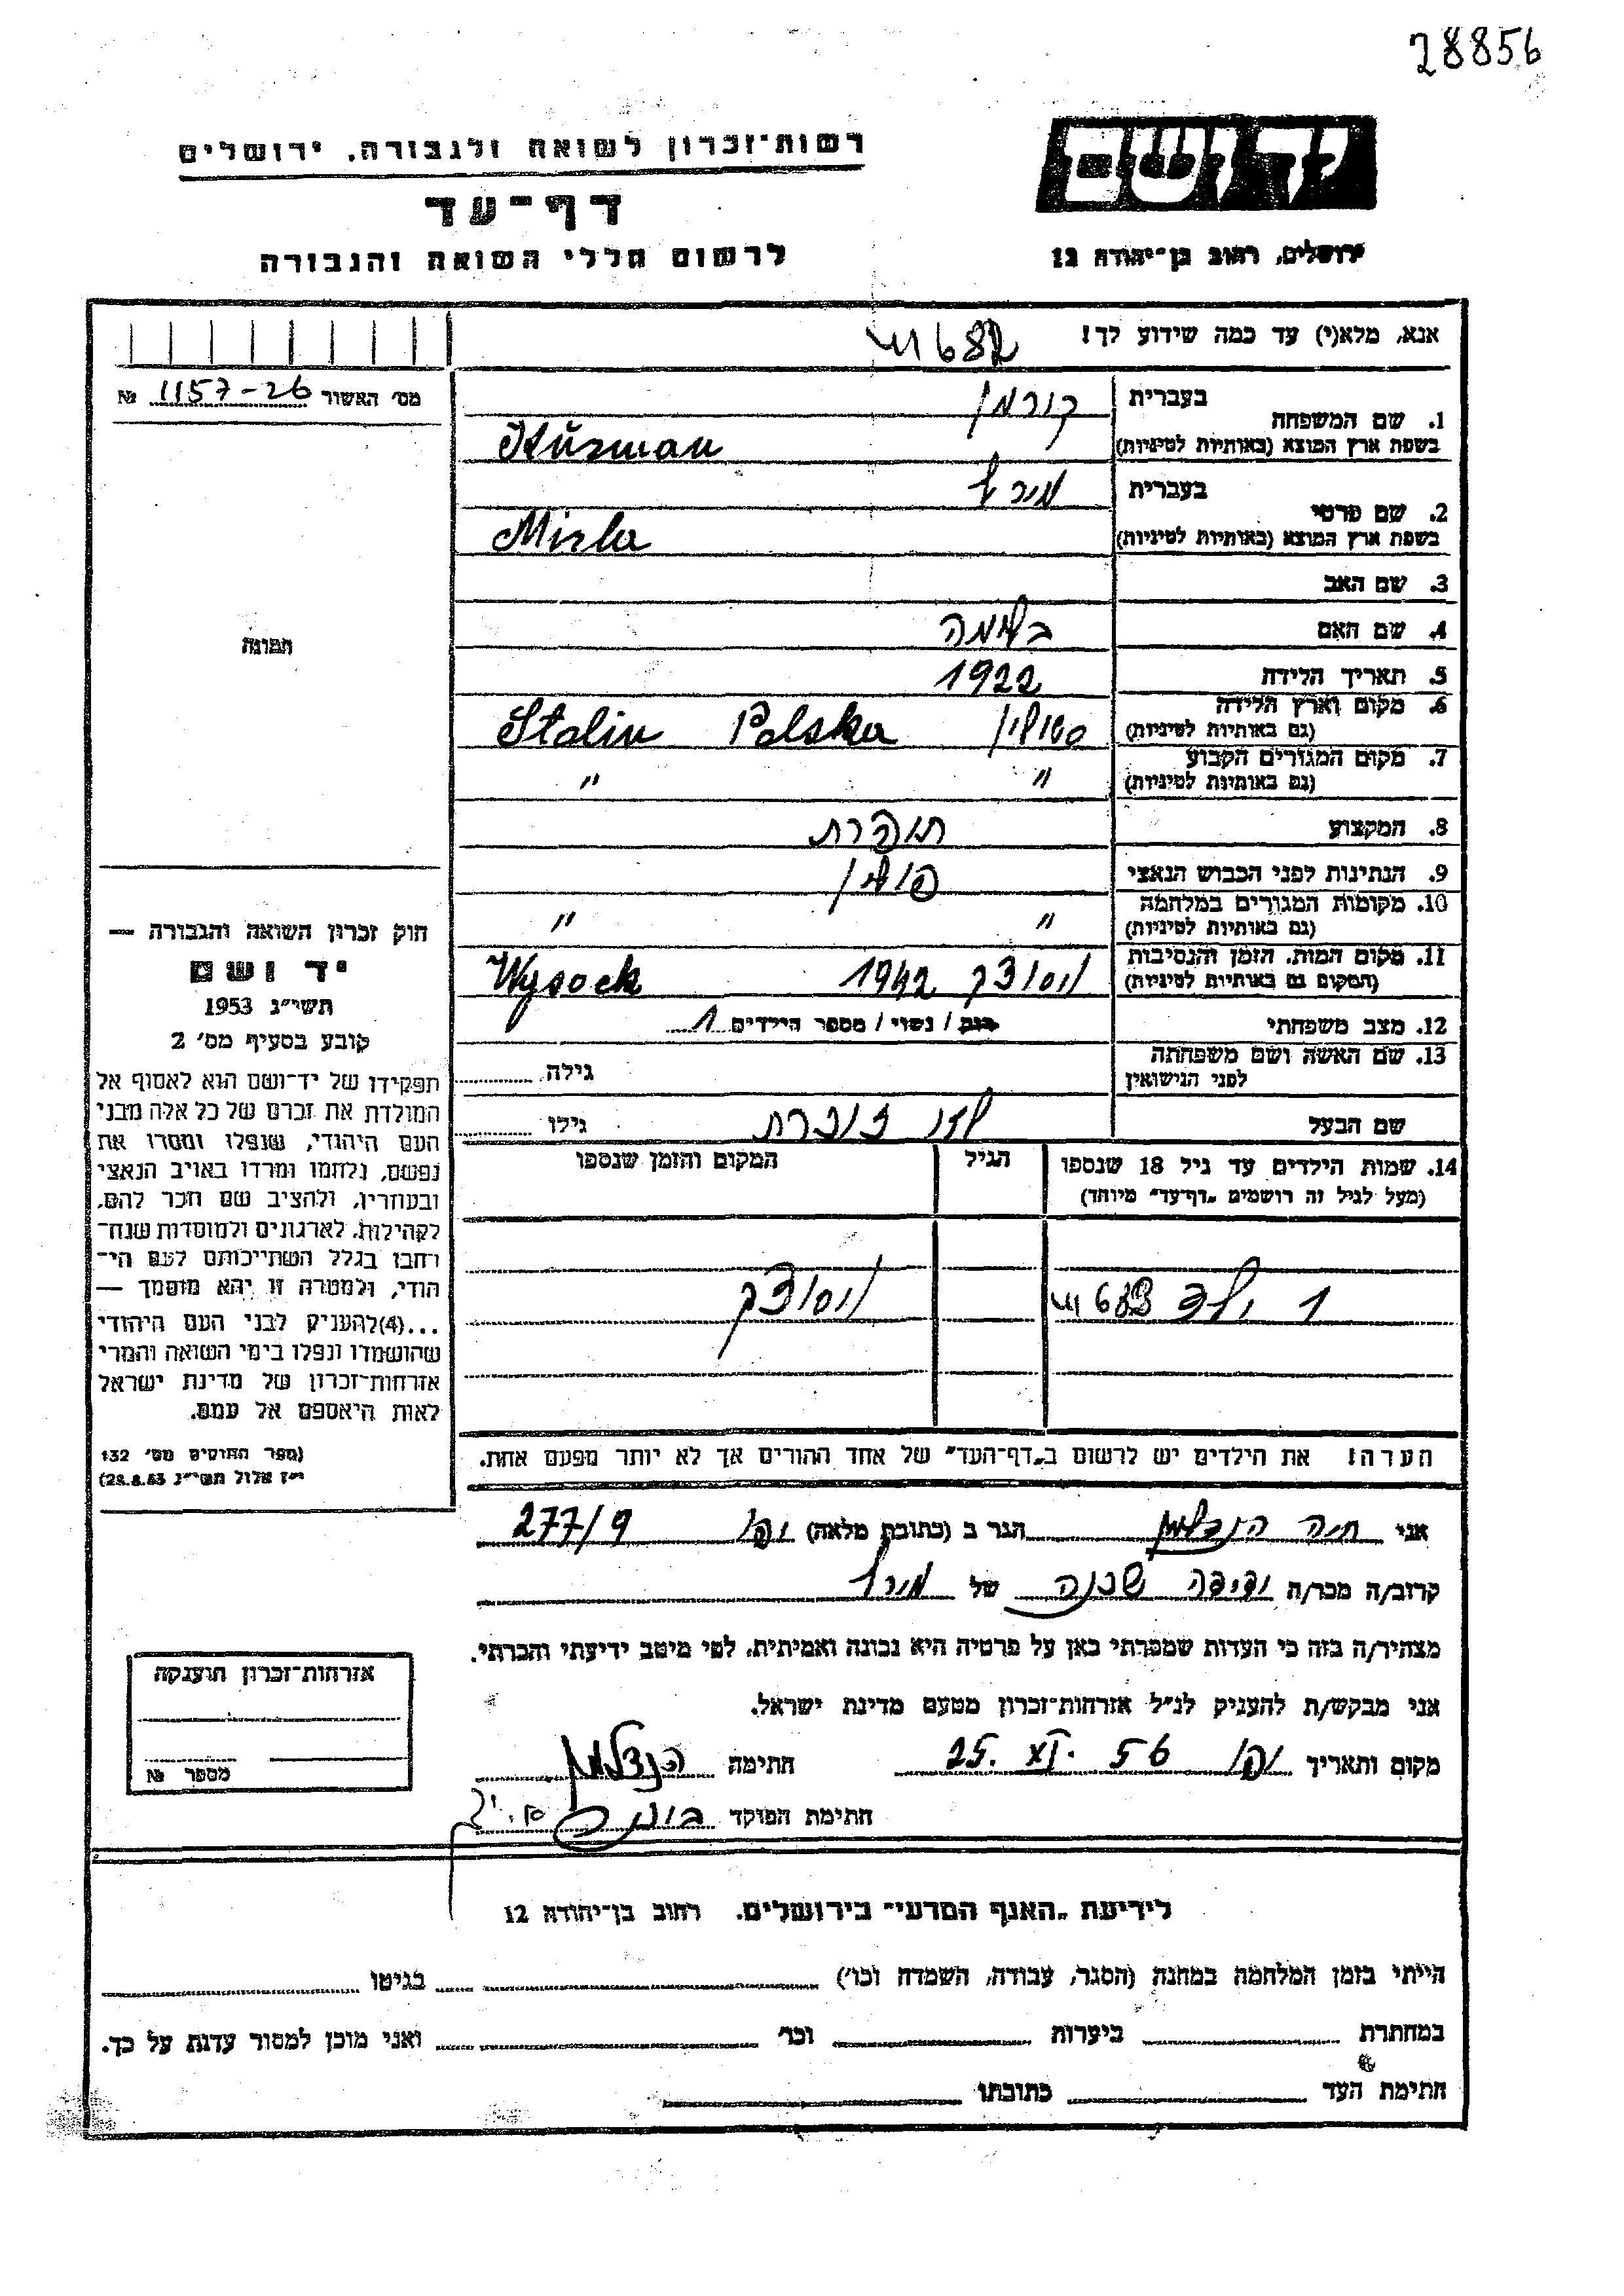 28856
יד ושם
רשות-זכרון לשואה ולגבורה, ירושלים
דף-עד
ירושלים, רחוב בן-יהודה 12
לרשום חללי השואה והגבורה
אנא, מלא(י) עד כמה שידוע לך!
מס׳ האשור 1157-26 №
1. שם המשפחה
בעברית קורמן
בשפת ארץ המוצא (באותיות לטיניות) Kurman
2. שם פרטי
בעברית מירל
בשפת ארץ המוצא (באותיות לטיניות) Mirla
3. שם האב
4. שם האם בלימה
5. תאריך הלידה 1922
6. מקום וארץ הלידה
(גם באותיות לטיניות) סטולין Stolin Polska
7. מקום המגורים הקבוע
(גם באותיות לטיניות) " "
8. המקצוע תופרת
9. הנתינות לפני הכבוש הנאצי פולין
10. מקומות המגורים במלחמה
(גם באותיות לטיניות) " "
11. מקום המות, הזמן והנסיבות
(המקום גם באותיות לטיניות) ויסוצק 1942 Wysock
12. מצב משפחתי רווק / נשוי / מספר הילדים 1
13. שם האשה ושם משפחתה
לפני הנישואין גילה
שם הבעל לא זוכרת גילו
14. שמות הילדים עד גיל 18 שנספו
(מעל לגיל זה רושמים „דף-עד" מיוחד)
הגיל
המקום והזמן שנספו
1 ילד ויסוצק
הערה! את הילדים יש לרשום ב„דף-העד" של אחד ההורים אך לא יותר מפעם אחת.
תמונה
חוק זכרון השואה והגבורה —
יד ושם
תשי״ג 1953
קובע בסעיף מס׳ 2
תפקידו של יד-ושם הוא לאסוף אל
המולדת את זכרם של כל אלה מבני
העם היהודי, שנפלו ומסרו את
נפשם, נלחמו ומרדו באויב הנאצי
ובעוזריו, ולהציב שם וזכר להם,
לקהילות, לארגונים ולמוסדות שנח-
רחבו בגלל השתייכותם לעם הי-
הודי, ולמטרה זו יהא מוסמך —
...(4)להעניק לבני העם היהודי
שהושמדו ונפלו בימי השואה והמרי
אזרחות-זכרון של מדינת ישראל
לאות היאספם אל עמם.
(ספר החוקים מס׳ 132
י״ז אלול תשי״ג 28.8.53)
אני חיה הנדלמן הגר ב (כתובת מלאה) 277/9
קרוב/ה מכר/ה ידידה שכנה של מירל
מצהיר/ה בזה כי העדות שמסרתי כאן על פרטיה היא נכונה ואמיתית, לפי מיטב ידיעתי והכרתי.
אני מבקש/ת להעניק לנ״ל אזרחות-זכרון מטעם מדינת ישראל.
מקום ותאריך 25. XI. 56 חתימה הנדלמן
חתימת הפוקד
אזרחות-זכרון הוענקה
מספר №
לידיעת „האגף המדעי" בירושלים, רחוב בן-יהודה 12
הייתי בזמן המלחמה במחנה (הסגר, עבודה, השמדה וכו׳) בגיטו
במחתרת ביערות וכו׳ ואני מוכן למסור עדות על כך.
חתימת העד כתובתו